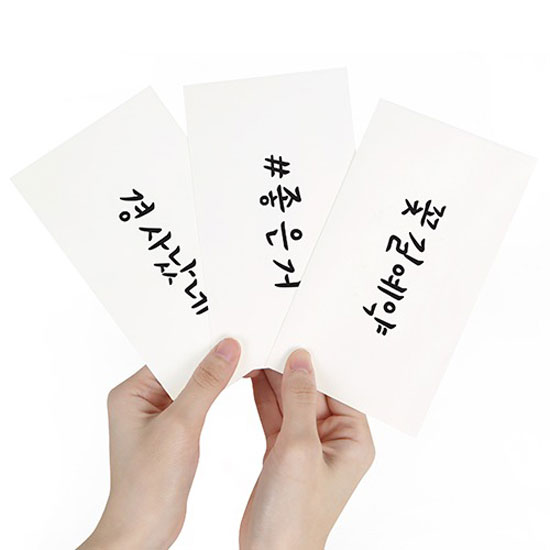 경사났네
#좋은거
꽃길예약